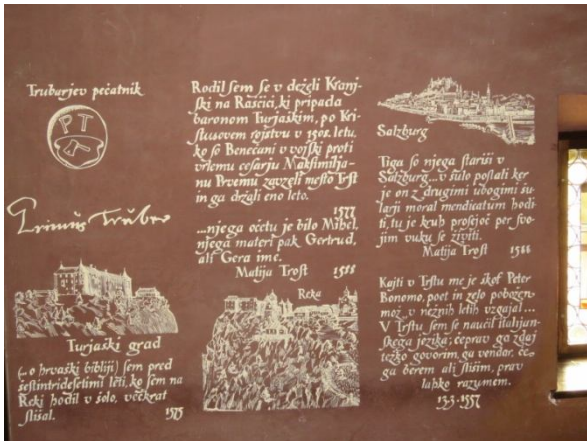 Trubarjev pečatnik
PT
Primus Truber
Turjaški grad
(...o hrvaški bibliji) sem pred
šestintridesetimi leti, ko sem na
Reki hodil v šolo, večkrat
slišal. 1575
Rodil sem se v deželi Kranj-
ski na Raščici, ki pripada
baronom Turjaškim, po Kri-
stusovem rojstvu v 1508. letu,
ko so Benečani v vojski proti
vrlemu cesarju Maksimilja-
nu Prvemu zavzeli mesto Trst
in ga držali eno leto.
1577
...njega očetu je bilo Mihel,
njega materi pak Gertrud,
ali Gera ime.
Matija Trost 1588
Reka
Salzburg
Tiga so njega stariši v
Salzburg... v šulo poslali ker
je on z drugimi ubogimi šu-
larji moral mendicatum hodi-
ti, tu je kruh prosjoč per svo-
jim vuku se živiti.
Matija Trost 1588
Kajti v Trstu me je škof Peter
Bonomo, poet in zelo pobožen
mož, v nežnih letih vzgajal...
V Trstu sem se naučil italijan-
skega jezika; čeprav ga zdaj
težko govorim, ga vendar, če
ga berem ali slišim, prav
lahko razumem.
13.3.1557